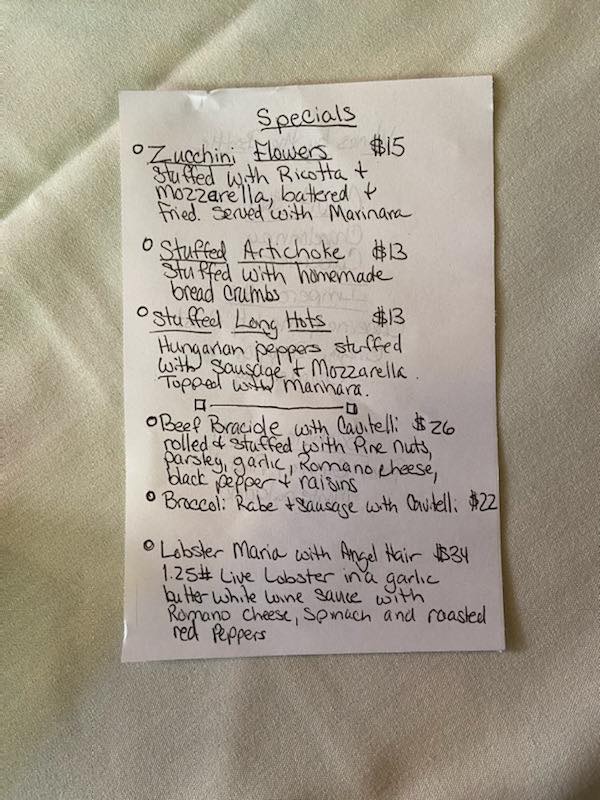 Specials
Zucchini Flowers $15
Stuffed with Ricotta +
Mozzarella, battered +
Fried. Served with Marinara
Stuffed Artichoke $13
Stuffed with homemade
bread crumbs
Stuffed Long Hots $13
Hungarian peppers stuffed
with Sausage + Mozzarella.
Topped with Marinara.
Beef Braciole with Cavitelli $26
rolled + stuffed with Pine nuts,
parsley, garlic, Romano cheese,
black pepper + raisins
Broccoli Rabe + Sausage with Cavitelli $22
Lobster Maria with Angel Hair $34
1.25# Live Lobster in a garlic
butter white wine sauce with
Romano cheese, Spinach and roasted
red peppers